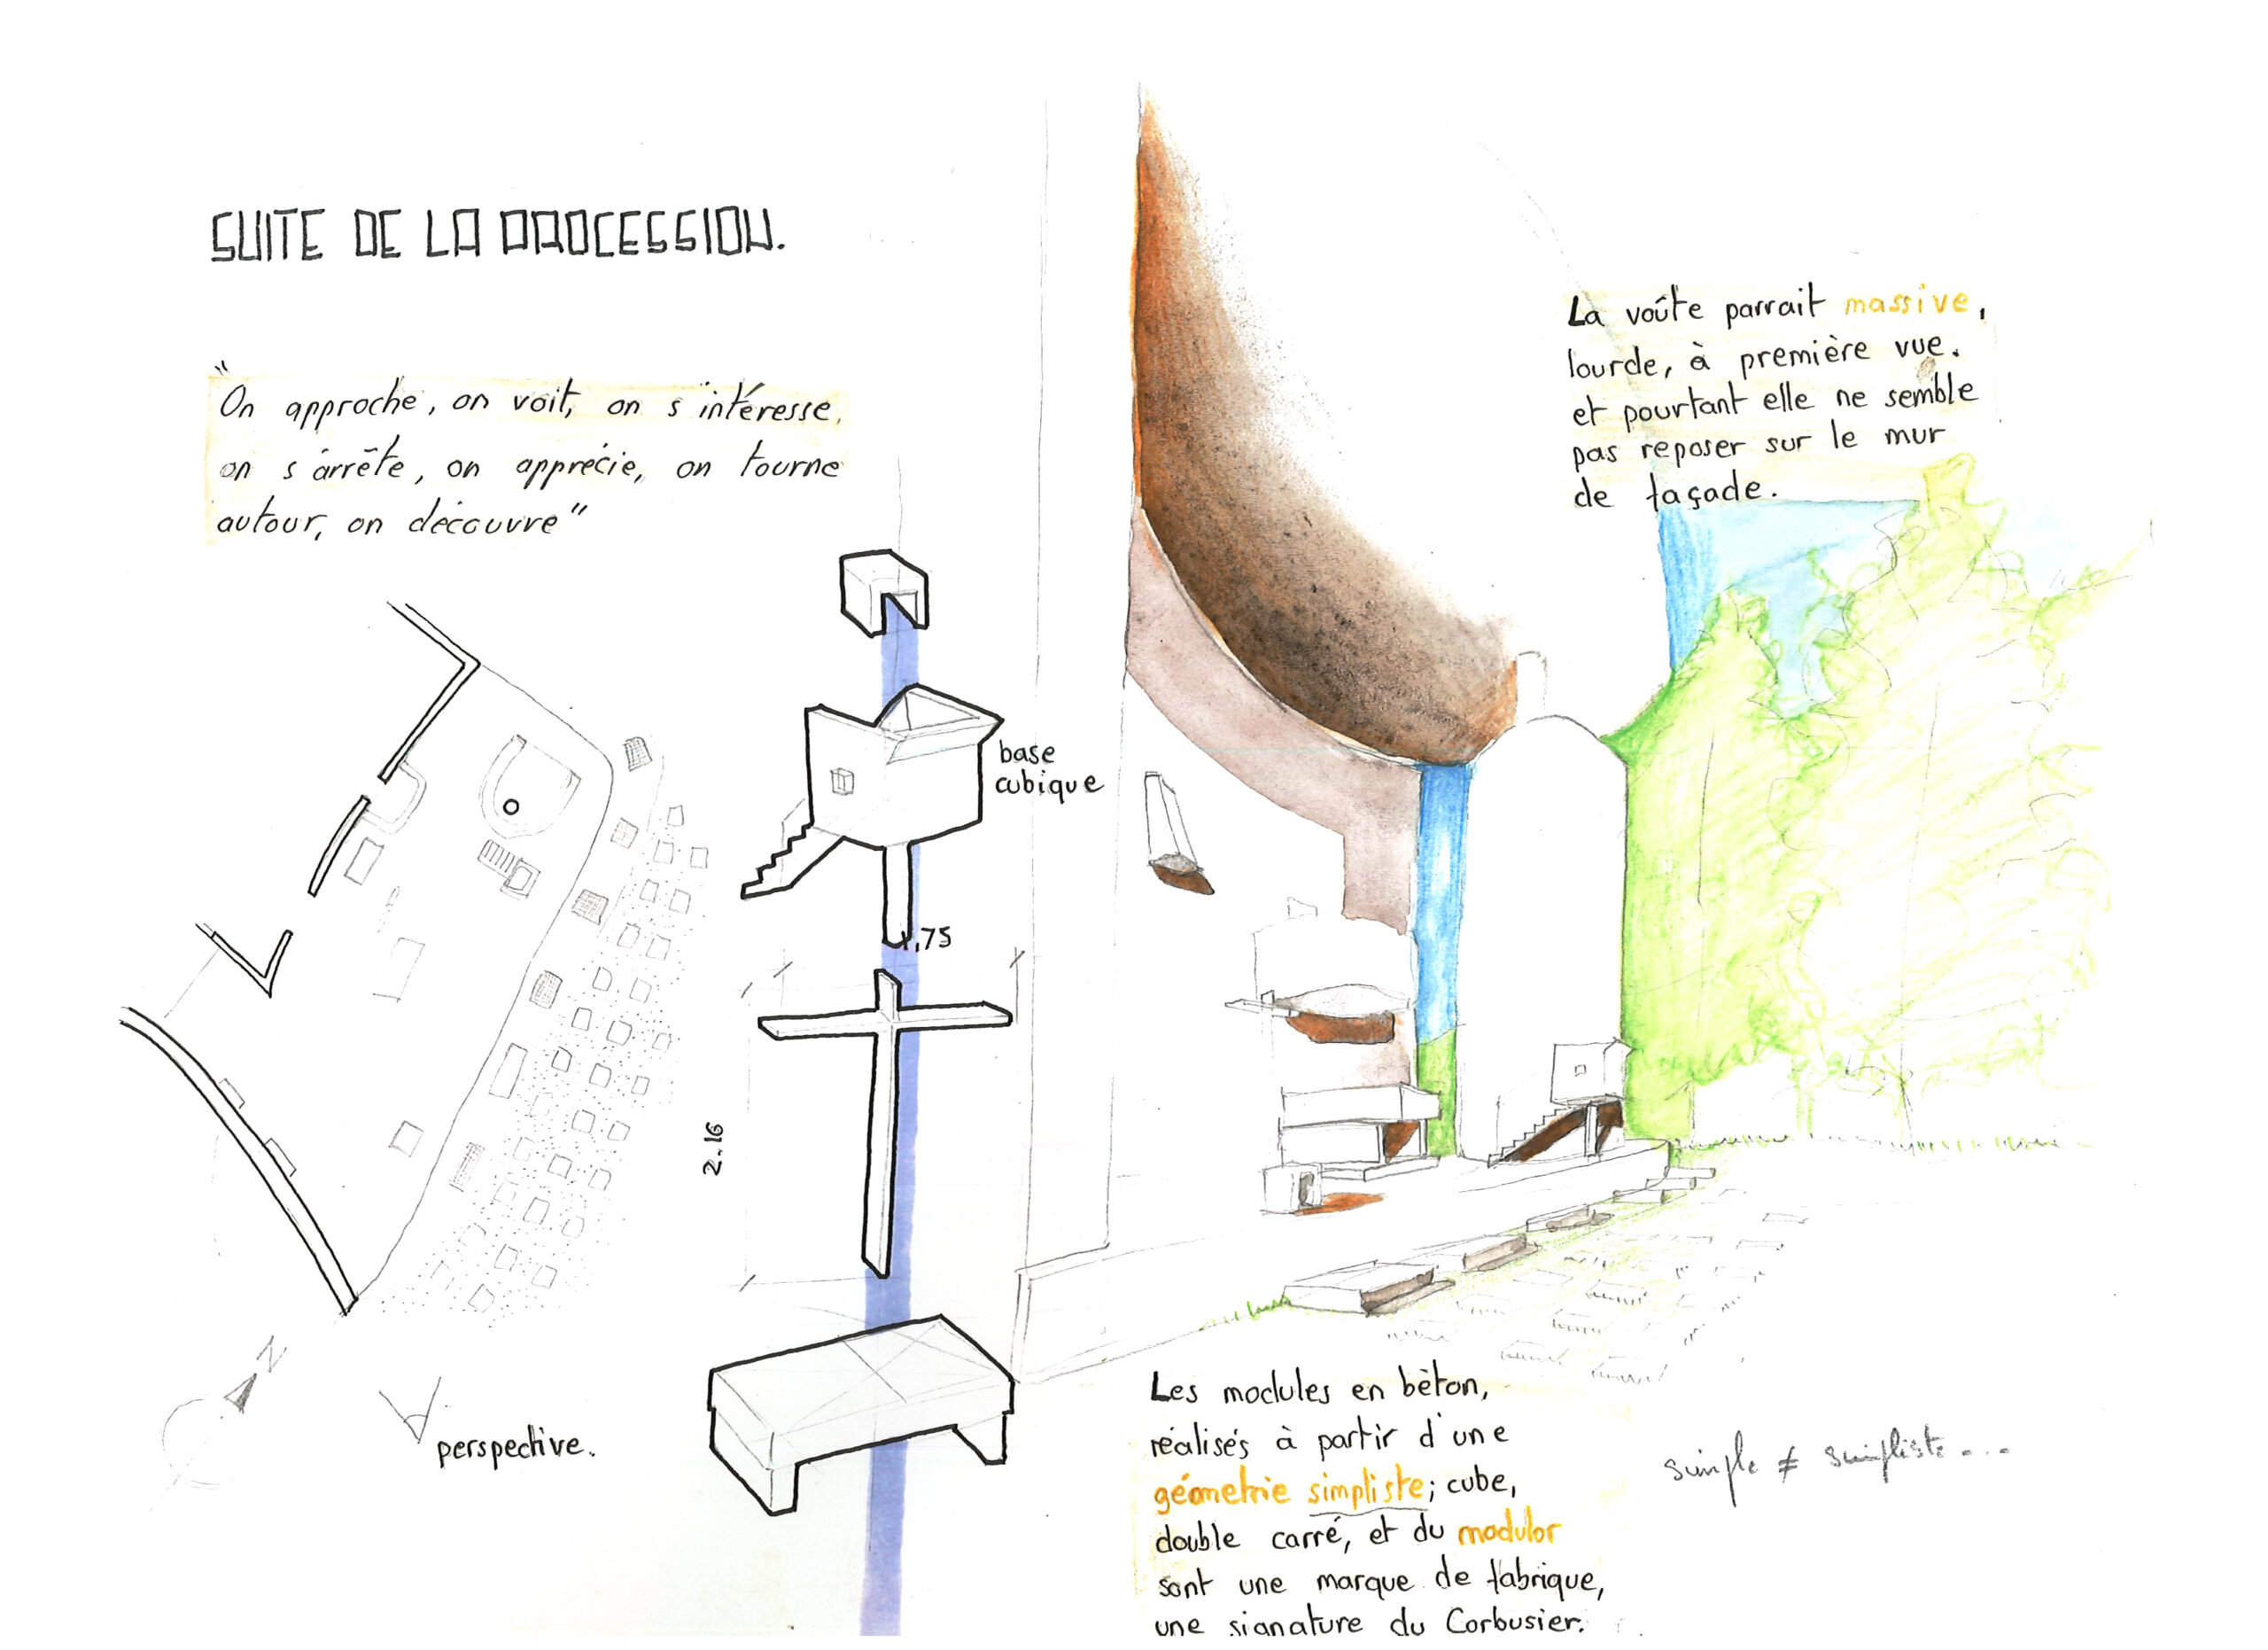 SUITE DE LA PROCESSION.
"On approche, on voit, on s'intéresse,
on s'arrête, on apprécie, on tourne
autour, on découvre"
La voûte parrait massive,
lourde, à première vue.
et pourtant elle ne semble
pas reposer sur le mur
de façade.
base
cubique
1.75
2.16
N
perspective.
Les modules en bèton,
réalisés à partir d'une
géometrie simpliste; cube,
double carré, et du modulor
sont une marque de fabrique,
une signature du Corbusier.
simple ≠ simpliste...